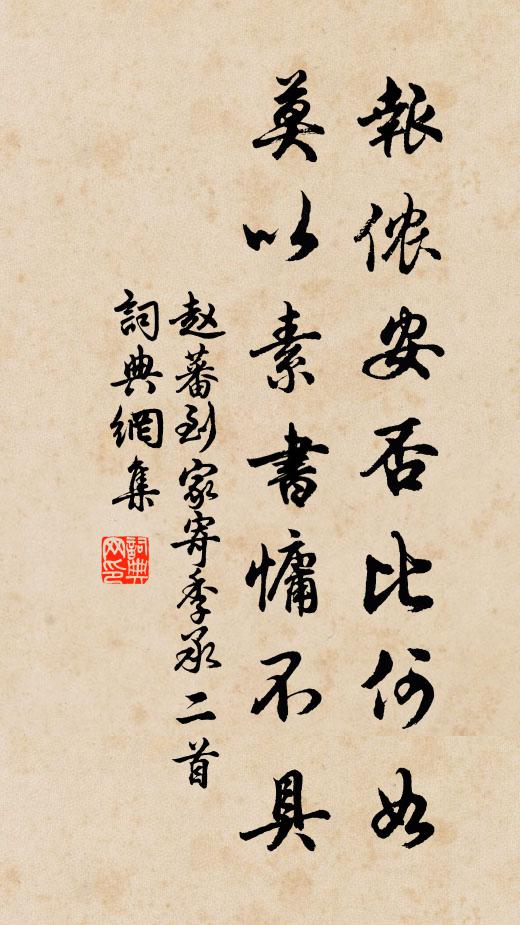 報侬安否比何如
莫以素書慵不具
赵蕃到家寄季承二首
詞典網集
詞典網印